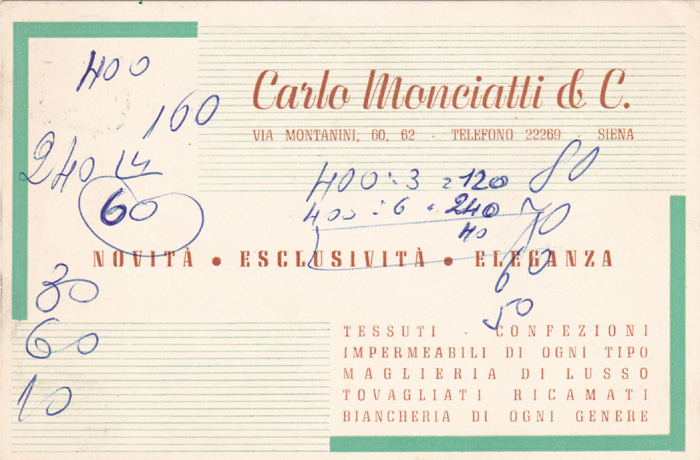 400
160
240 14
60
30
60
10
Carlo Monciatti & C.
VIA MONTANINI, 60, 62 - TELEFONO 22269 - SIENA
400 : 3 = 120
400 : 6 = 240
40
80
70
60
50
NOVITÀ • ESCLUSIVITÀ • ELEGANZA
TESSUTI - CONFEZIONI
IMPERMEABILI DI OGNI TIPO
MAGLIERIA DI LUSSO
TOVAGLIATI RICAMATI
BIANCHERIA DI OGNI GENERE